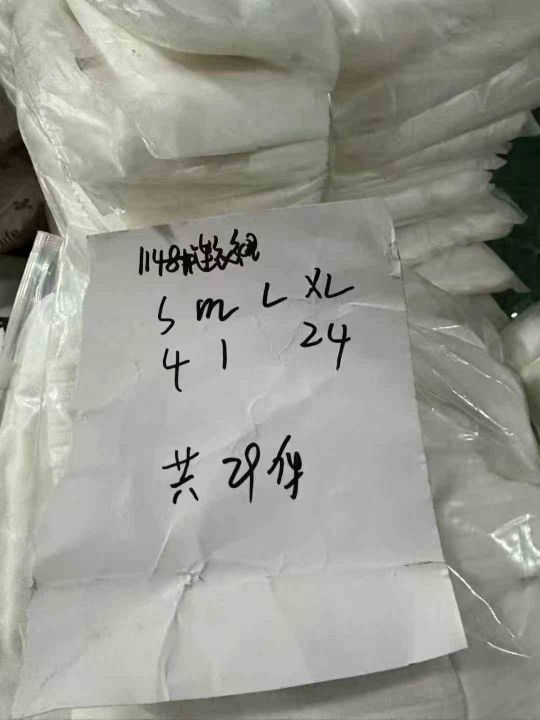 1148
S m L XL
4 1 24
共 29 件
life